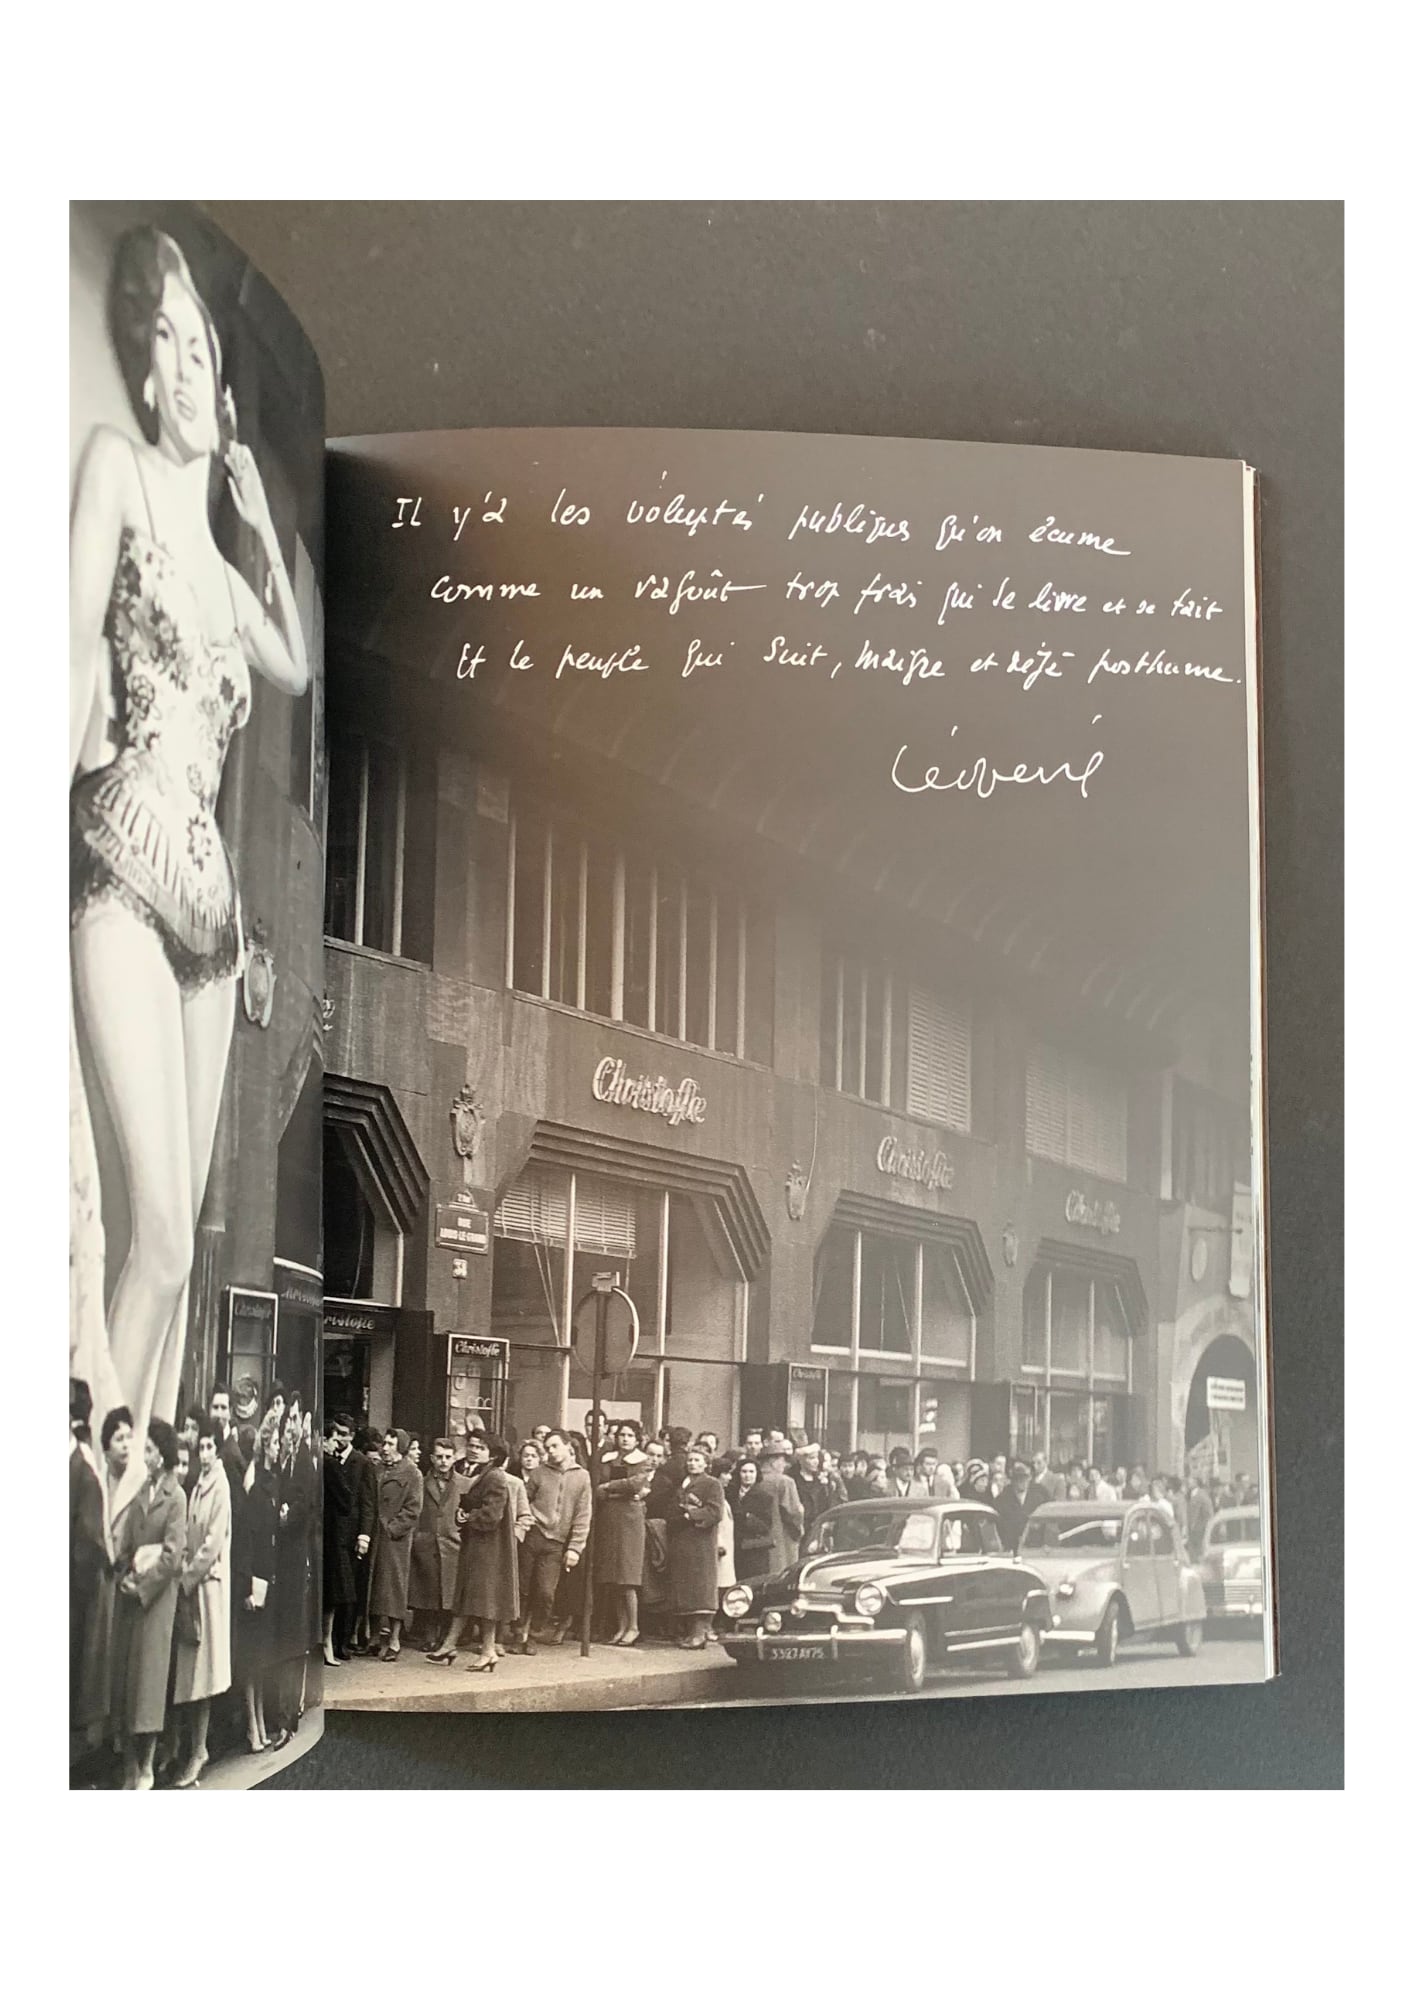 Il y'a les voluptés publiques qu'on écume
comme un ragoût trop frais qui se livre et se tait
Et le peuple qui suit, maigre et déjà posthume.
Léo Ferré
Christofle
Christofle
Christofle
RUE
LOUIS-LE-GRAND
34
Christofle
ristofle
Christofle
Christofle
3327AY75